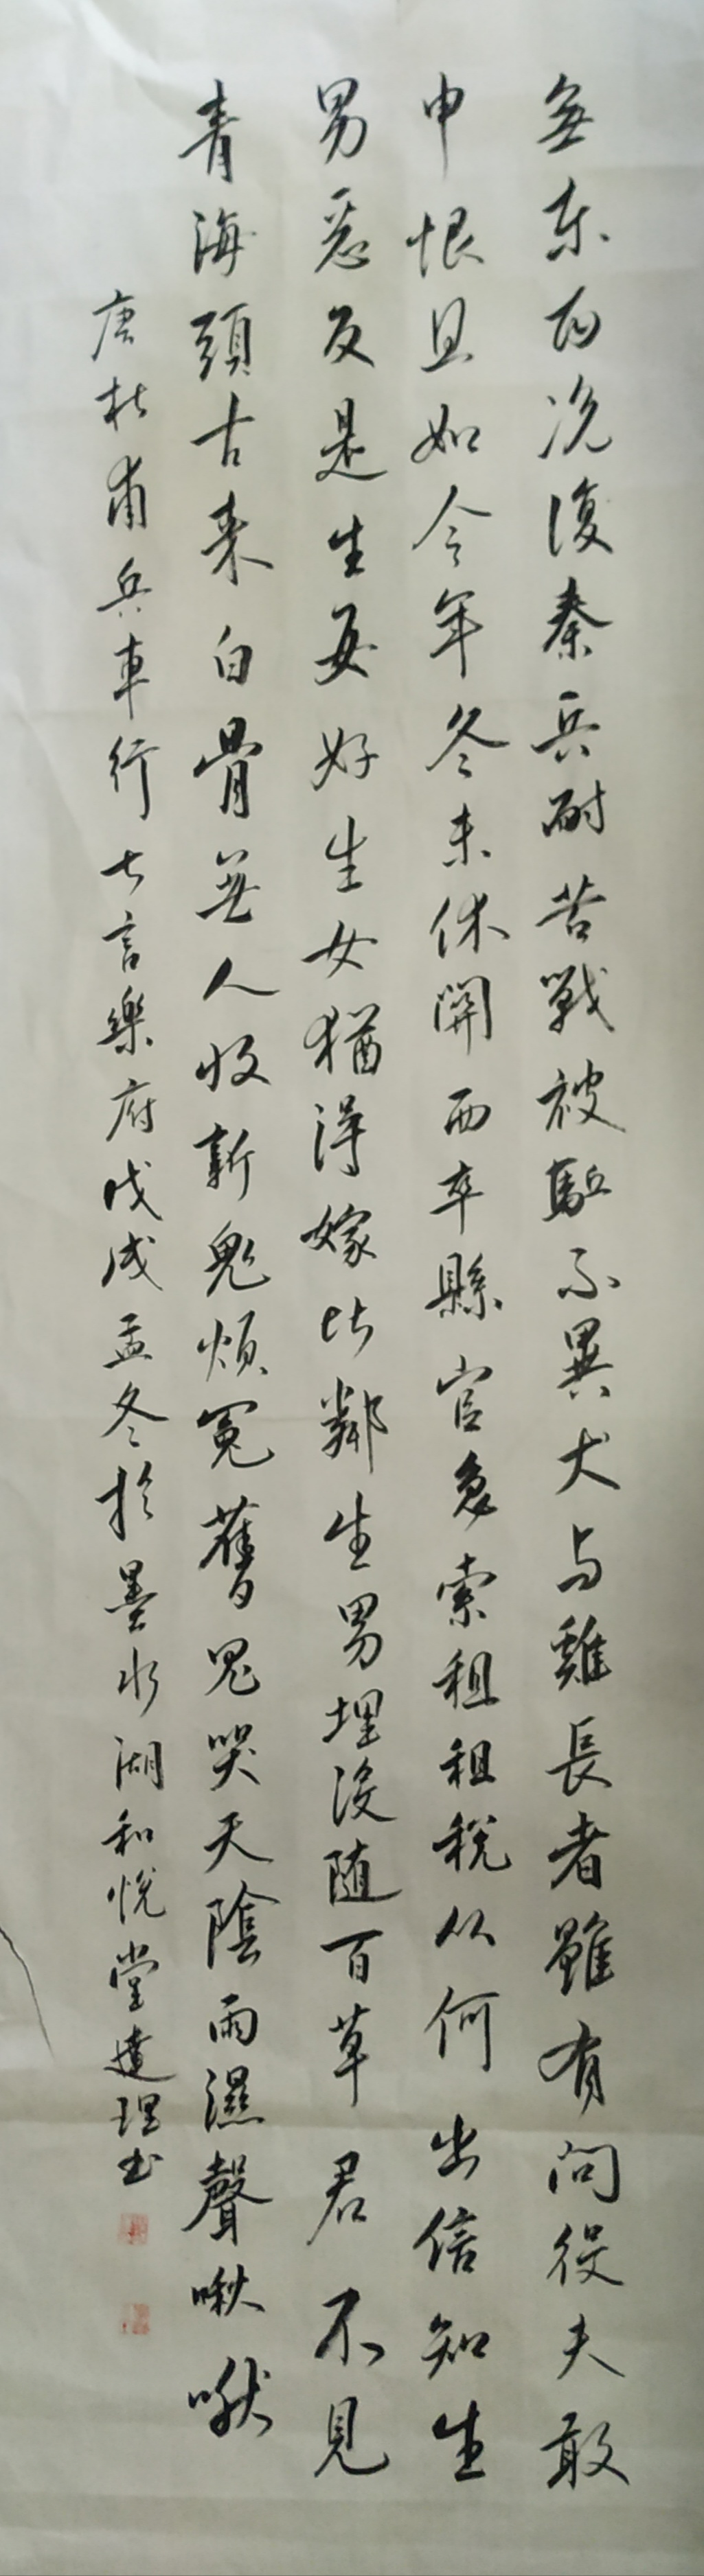 無東西況復秦兵耐苦戰被驅不異犬与雞長者雖有問役夫敢
申恨且如今年冬未休關西卒縣官急索租租稅从何出信知生
男惡反是生女好生女猶得嫁比鄰生男埋没随百草君不見
青海頭古来白骨無人收新鬼煩冤舊鬼哭天陰雨濕聲啾啾
唐杜甫兵車行七言樂府戊戌孟冬於墨水湖和悅堂達理书